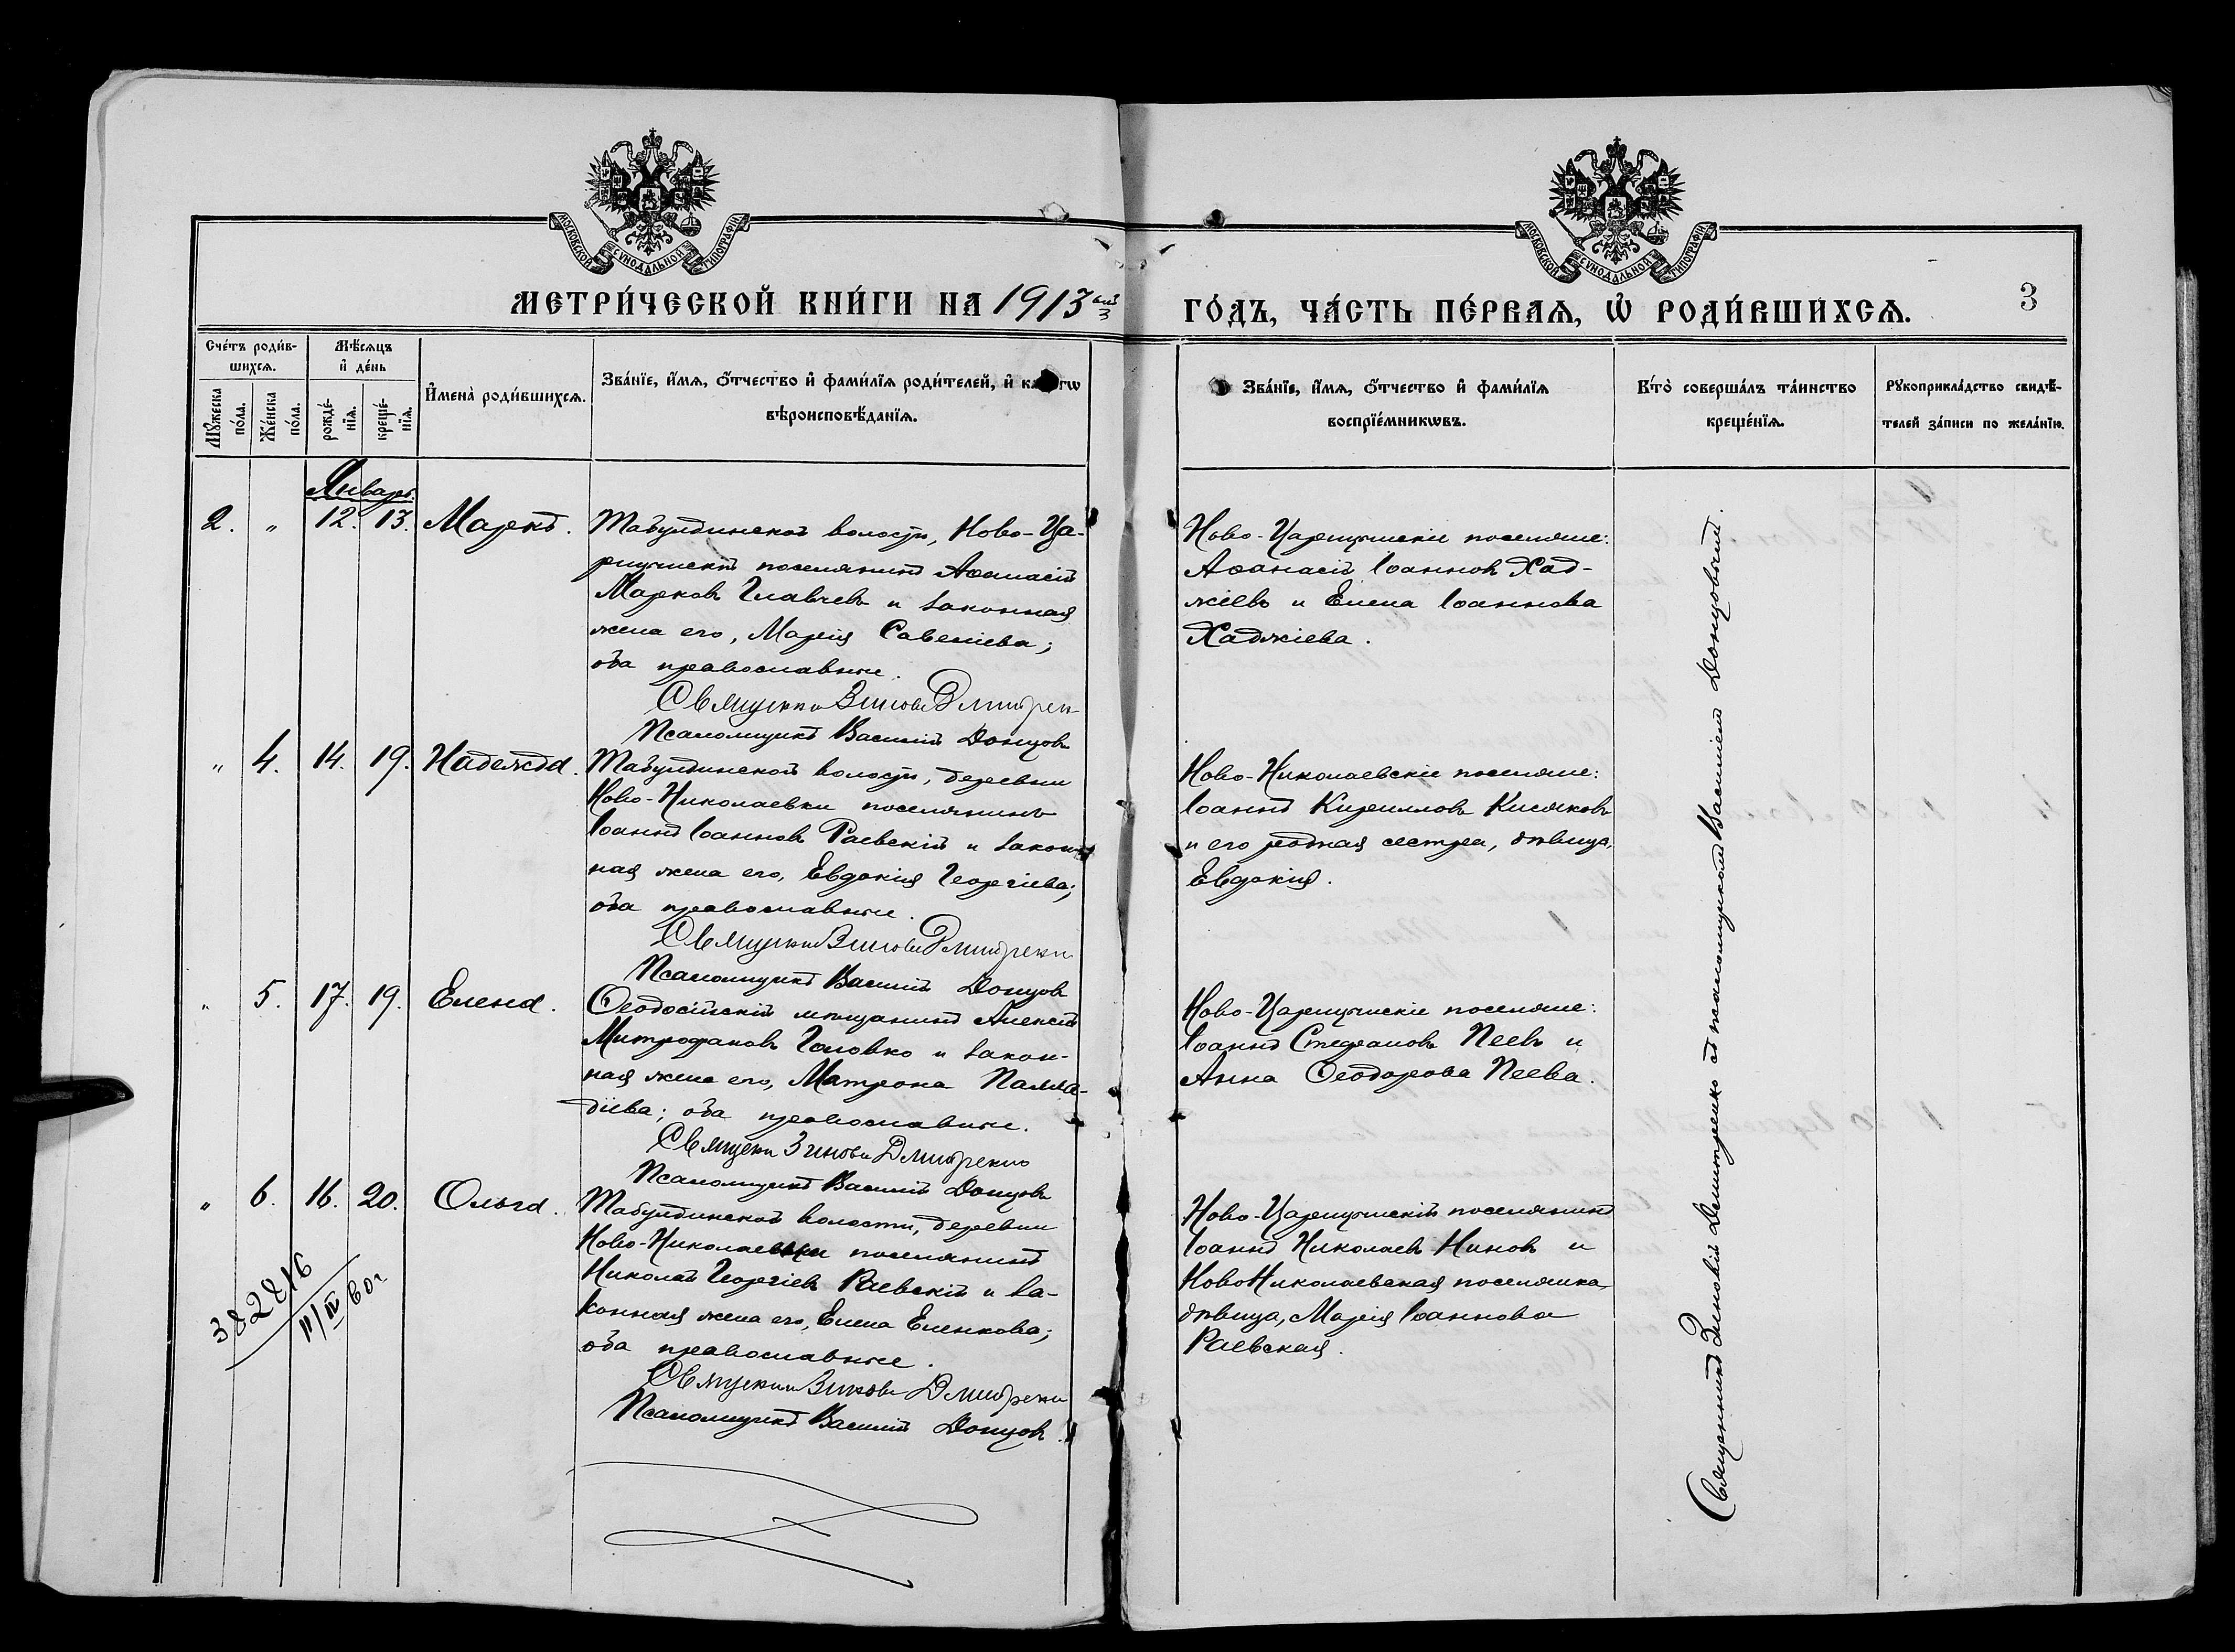 МОСКОВСКОЙ СУНОДАЛЬНОЙ ТИПОГРАФІИ
МОСКОВСКОЙ СУНОДАЛЬНОЙ ТИПОГРАФІИ
МЕТРИ́ЧЕСКОЙ КНИ́ГИ НА 1913 ый
ГО́ДЪ, ЧА́СТЬ ПЕ́РВАѦ, Ѡ҆ РОДИ́ВШИХСѦ.
3
Сче́тъ роди́в-
шихсѧ.
Мꙋ́жеска
по́ла.
Же́нска
по́ла.
Мѣ́сѧцъ
и҆ де́нь
рожде́-
нїѧ.
креще́-
нїѧ.
И҆мена̀ роди́вшихсѧ.
Зва́нїе, и҆́мѧ, ѻ҆́тчество и҆ фами́лїѧ роди́телей, и҆ ка гѡ
вѣроисповѣ́данїѧ.
Зва́нїе, и҆́мѧ, ѻ҆́тчество и҆ фами́лїѧ
воспрїе́мникѡвъ.
Кто̀ соверша́лъ та́инство
креще́нїѧ.
Рꙋкоприкла́дство свидѣ́-
телей за́писи по жела́нїю.
Январь.
2. " 12. 13. Маркъ.
Табулдинской волости, Ново-Ца-
рицынскій поселянинъ Аѳанасій
Марковъ Главчевъ и законная
жена его, Марія Савеліева;
оба православные.
Священни Зинови Дмитрен
Псаломщикъ Василій Донцовъ
Ново-Царицынскіе поселяне:
Аѳанасій Іоанновъ Хад-
жіевъ и Елена Іоаннова
Хаджіева.
" 4. 14. 19. Надежда.
Табулдинской волости, деревни
Ново-Николаевки поселянинъ
Іоаннъ Іоанновъ Раевскій и закон
ная жена его, Евдокія Георгіева;
оба православные.
Священни Зинови Дмитренко
Псаломщикъ Василій Донцовъ
Ново-Николаевскіе поселяне:
Іоаннъ Кирилловъ Кисяковъ
и его родная сестра, дѣвица,
Евдокія.
" 5. 17. 19. Елена.
Ѳеодосійскій мѣщанинъ Алексій
Митрофановъ Головко и закон-
ная жена его, Матрона Палла-
діева; оба православные.
Священи Зинови Дмитренко
Псаломщикъ Василій Донцовъ
Ново-Царицынскіе поселяне:
Іоаннъ Стефановъ Пеевъ и
Анна Ѳеодорова Пеева.
" 6. 16. 20. Ольга.
Табулдинской волости, деревни
Ново-Николаевки поселянинъ
Николай Георгіевъ Раевскій и за-
конная жена его, Елена Еленкова;
оба православные.
Священни Зинови Дмитренко
Псаломщикъ Василій Донцовъ.
Ново-Царицынскій поселянинъ
Іоаннъ Николаевъ Ниновъ и
Ново Николаевская поселянка,
дѣвица, Марія Іоаннова
Раевская.
382816
11/IV 60 г
Священникъ Зиновій Дмитренко съ псаломщикомъ Василіемъ Донцовымъ.